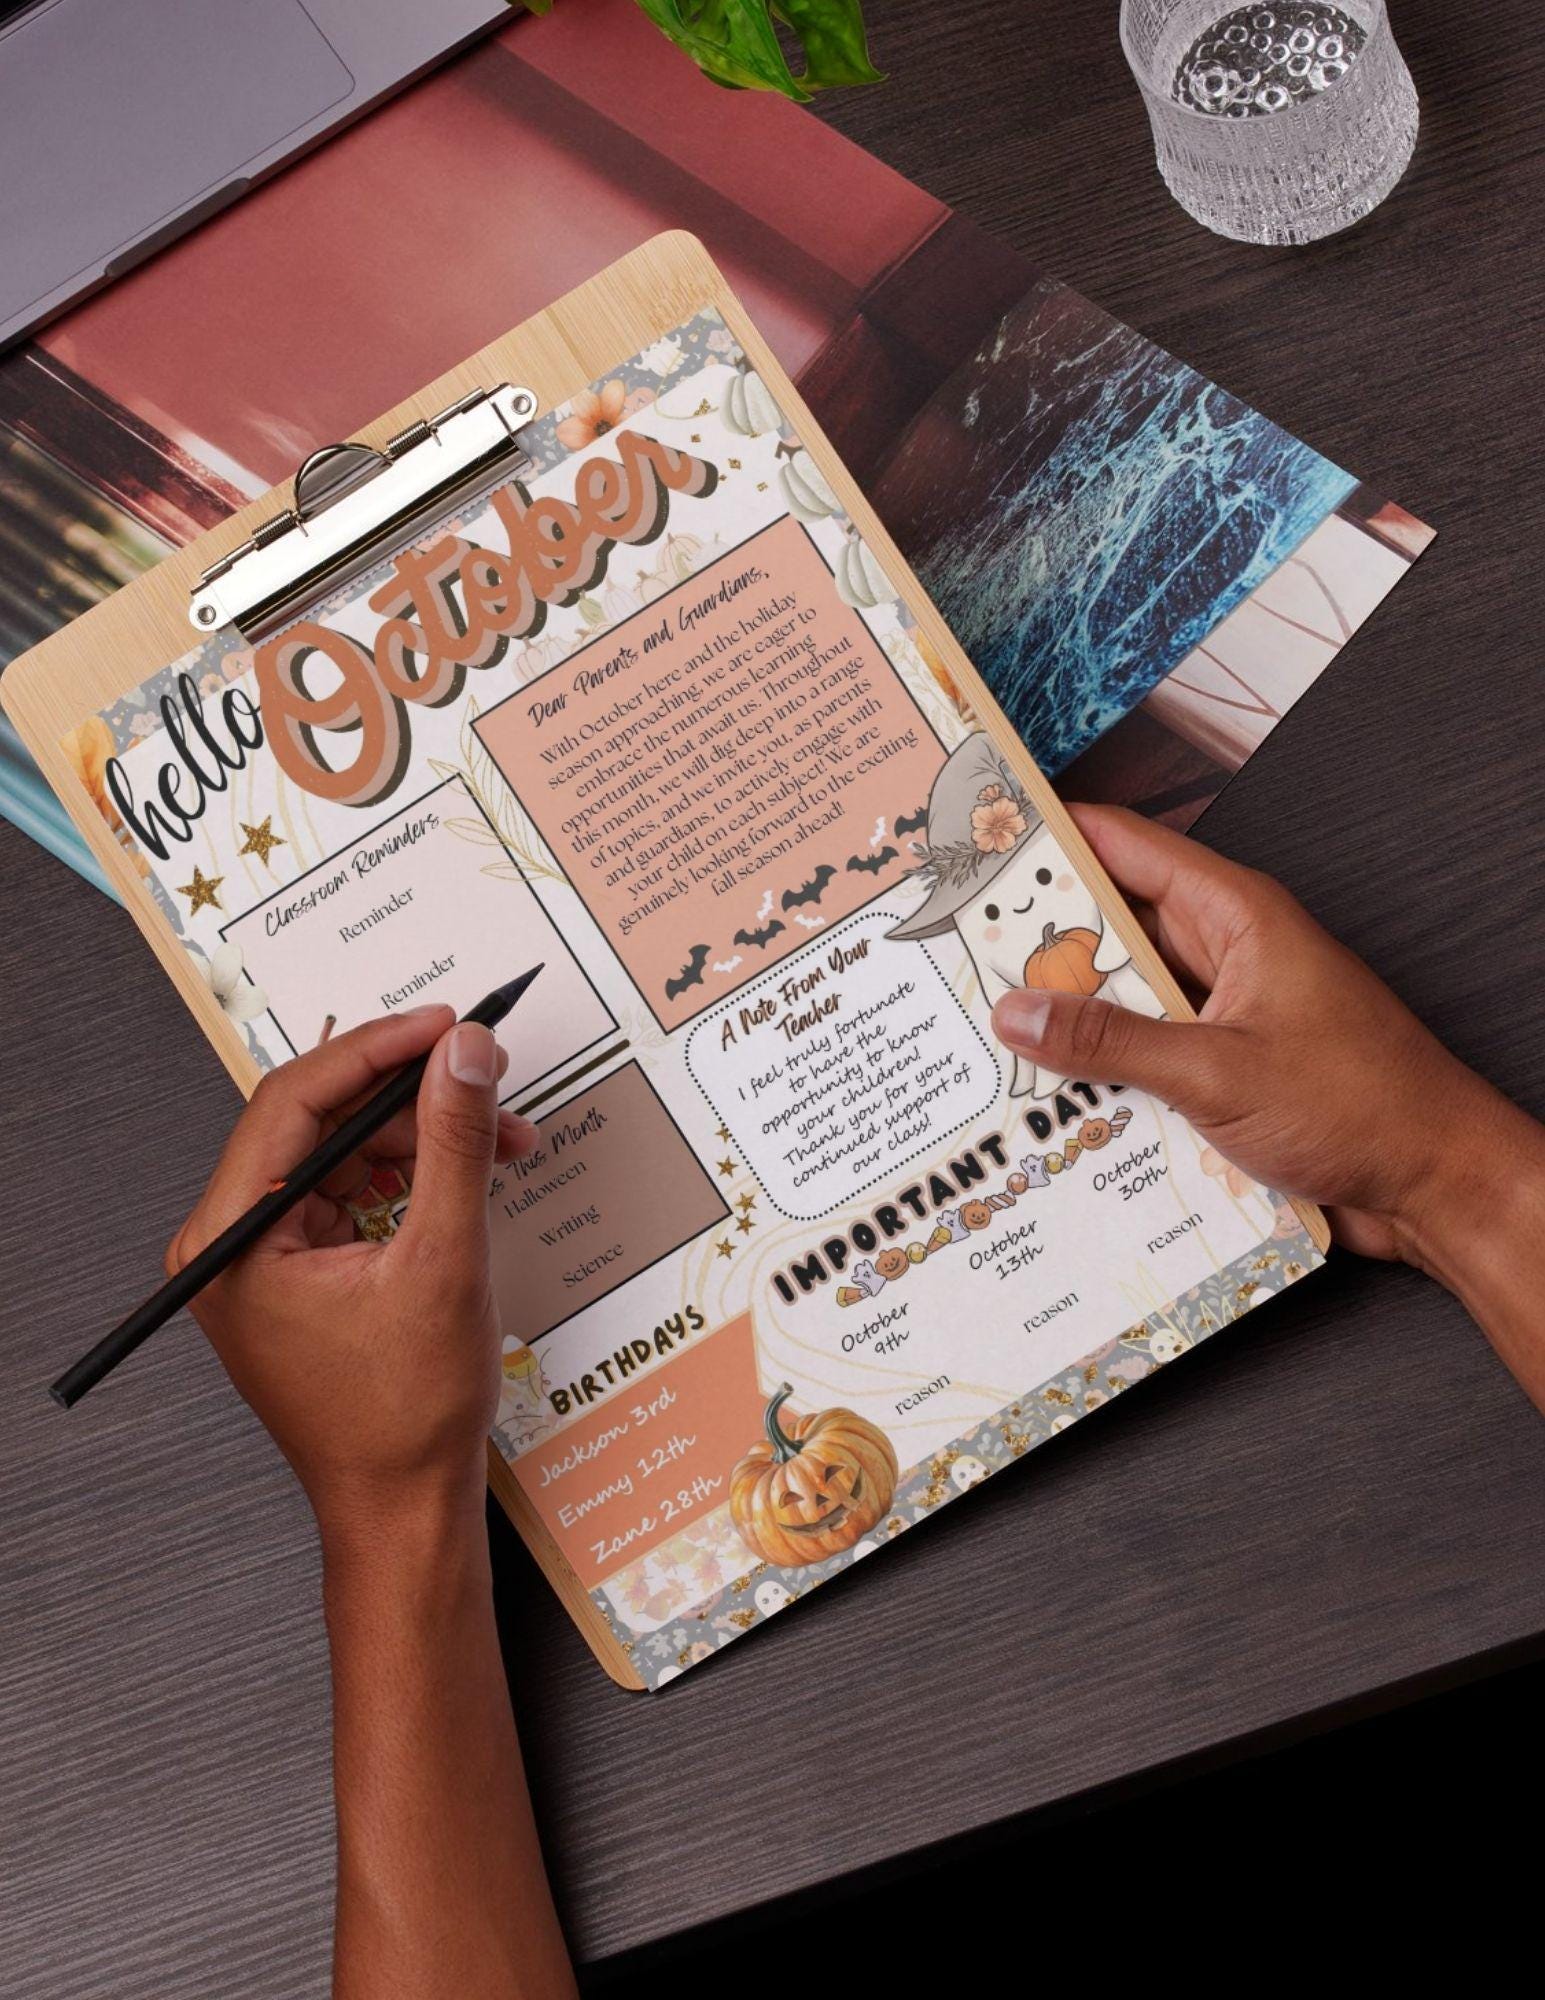 hello
October
Dear Parents and Guardians,
With October here and the holiday
season approaching, we are eager to
embrace the numerous learning
opportunities that await us. Throughout
this month, we will dig deep into a range
of topics, and we invite you, as parents
and guardians, to actively engage with
your child on each subject! We are
genuinely looking forward to the exciting
fall season ahead!
Classroom Reminders
Reminder
Reminder
This Month
Halloween
Writing
Science
A Note From Your
Teacher
I feel truly fortunate
to have the
opportunity to know
your children!
Thank you for your
continued support of
our class!
IMPORTANT
October
9th
reason
October
13th
reason
October
30th
reason
BIRTHDAYS
Jackson 3rd
Emmy 12th
Zane 28th